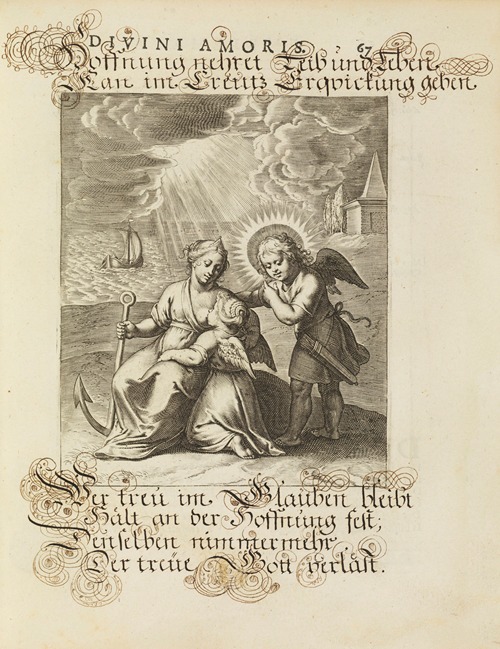 DIVINI AMORIS. 67
Hoffnung nehret Leib und Leben
Kan im Creutz Erqvickung geben
Wer treu im Glauben bleibt
Hält an der Hoffnung fest,
Denselben nimmermehr
Der treüe Gott verläst.